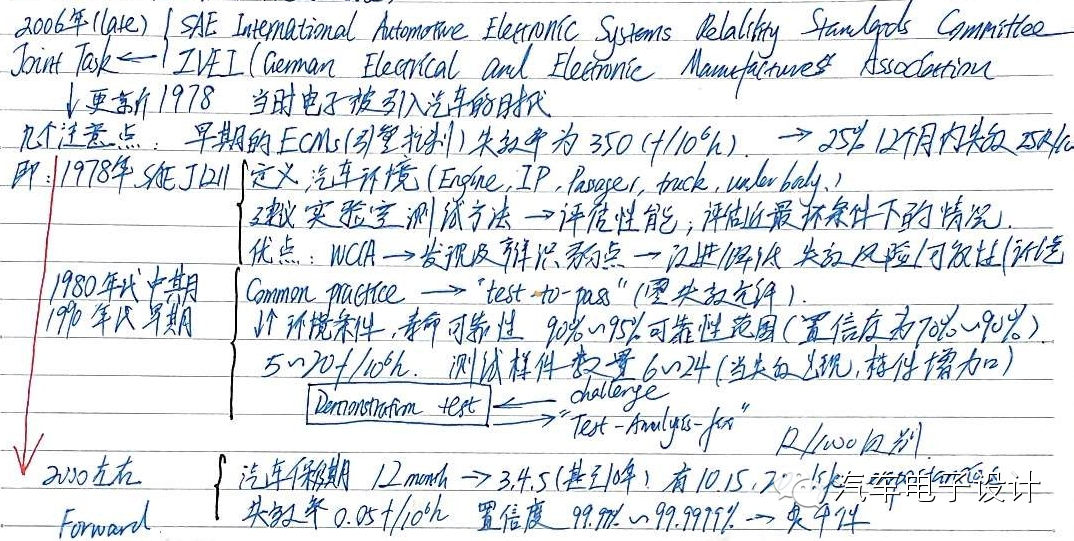 2006年(late) { SAE International Automotive Electronic Systems Relability Standards Committee
Joint Task ← ZVEI (German Electrical and Electronic Manufactures Association
↓ 更新 1978 当时电子被引入汽车的时代
几个注意点: 早期的ECMs(引擎控制)失效率为350(f/10⁶h). → 25% 12个月内失效
即: 1978年 SAE J1211 { 定义汽车环境(Engine, IP, Passager, truck, underbody.)
建议实验室测试方法 → 评估性能; 评估近最坏条件下的情况.
优点: WCCA → 发现及辨识弱点 → 改进/降低 失效风险/可靠性
1980年代中期
1990年代早期
Common practice → "test-to-pass" (零失效允许).
↓↑ 环境条件, 寿命可靠性 90%~95%可靠性范围(置信度为70%~90%)
5~20f/10⁶h. 测试样件数量 6~24(当失效出现, 样件增加)
Demonstration test ← challenge
→ "Test-Analysis-fix"
R/1000 区别
2000左右
Forward
汽车保修期 12 month → 3.4.5(甚至10年) 有10.15,
失效率 0.05f/10⁶h 置信度 99.99% ~ 99.9999% → 零件
汽车电子设计